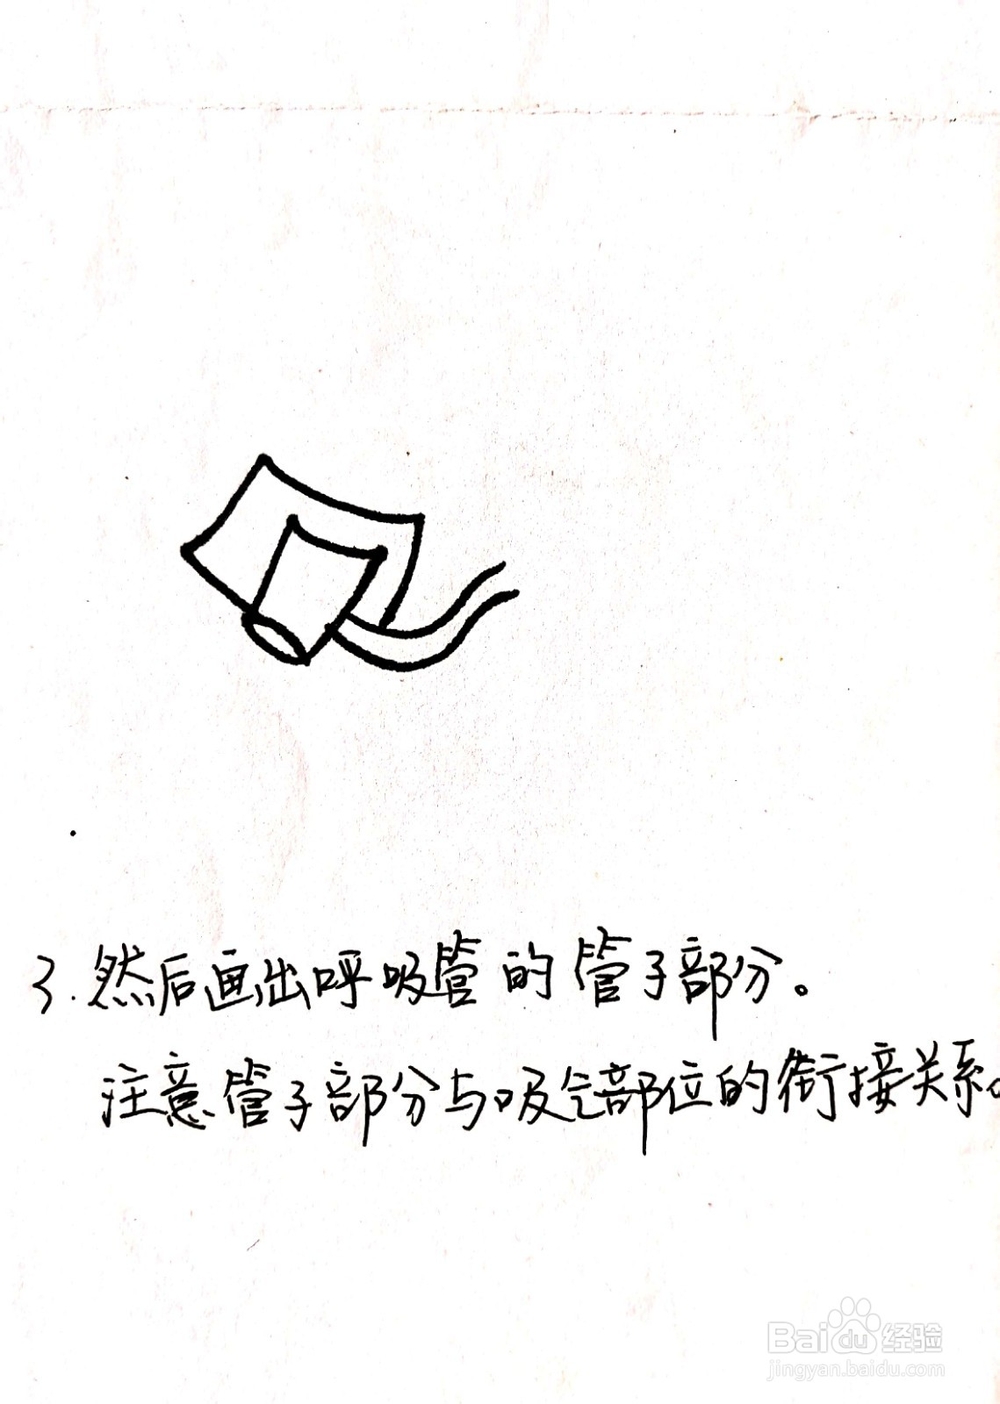 3.然后画出呼吸管的管子部分。
注意管子部分与吸气部位的衔接关系。
Baidu经验
jingyan.baidu.com